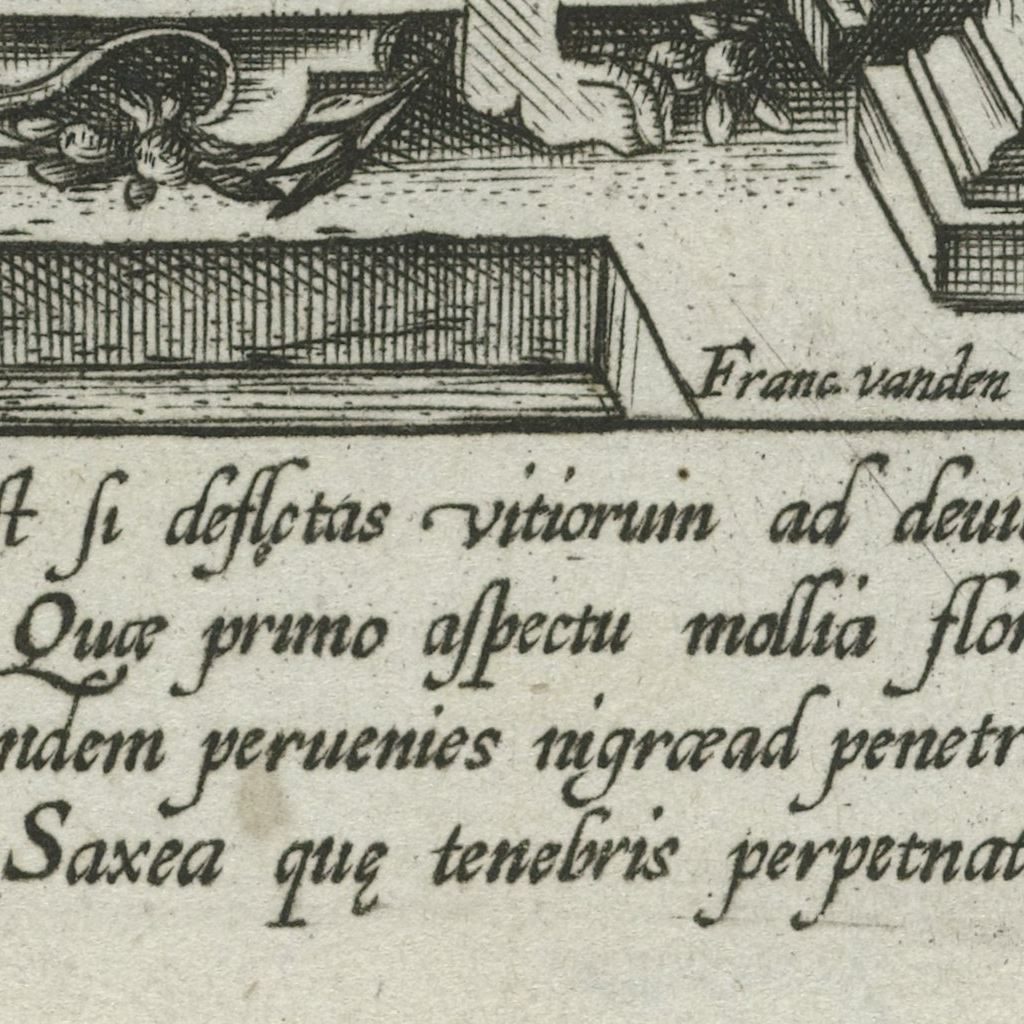 Franc. vanden
st si deflectas vitiorum ad deui
Quæ primo aspectu mollia flor
ndem peruenies nigræ ad penetr
Saxea quę tenebris perpetnat